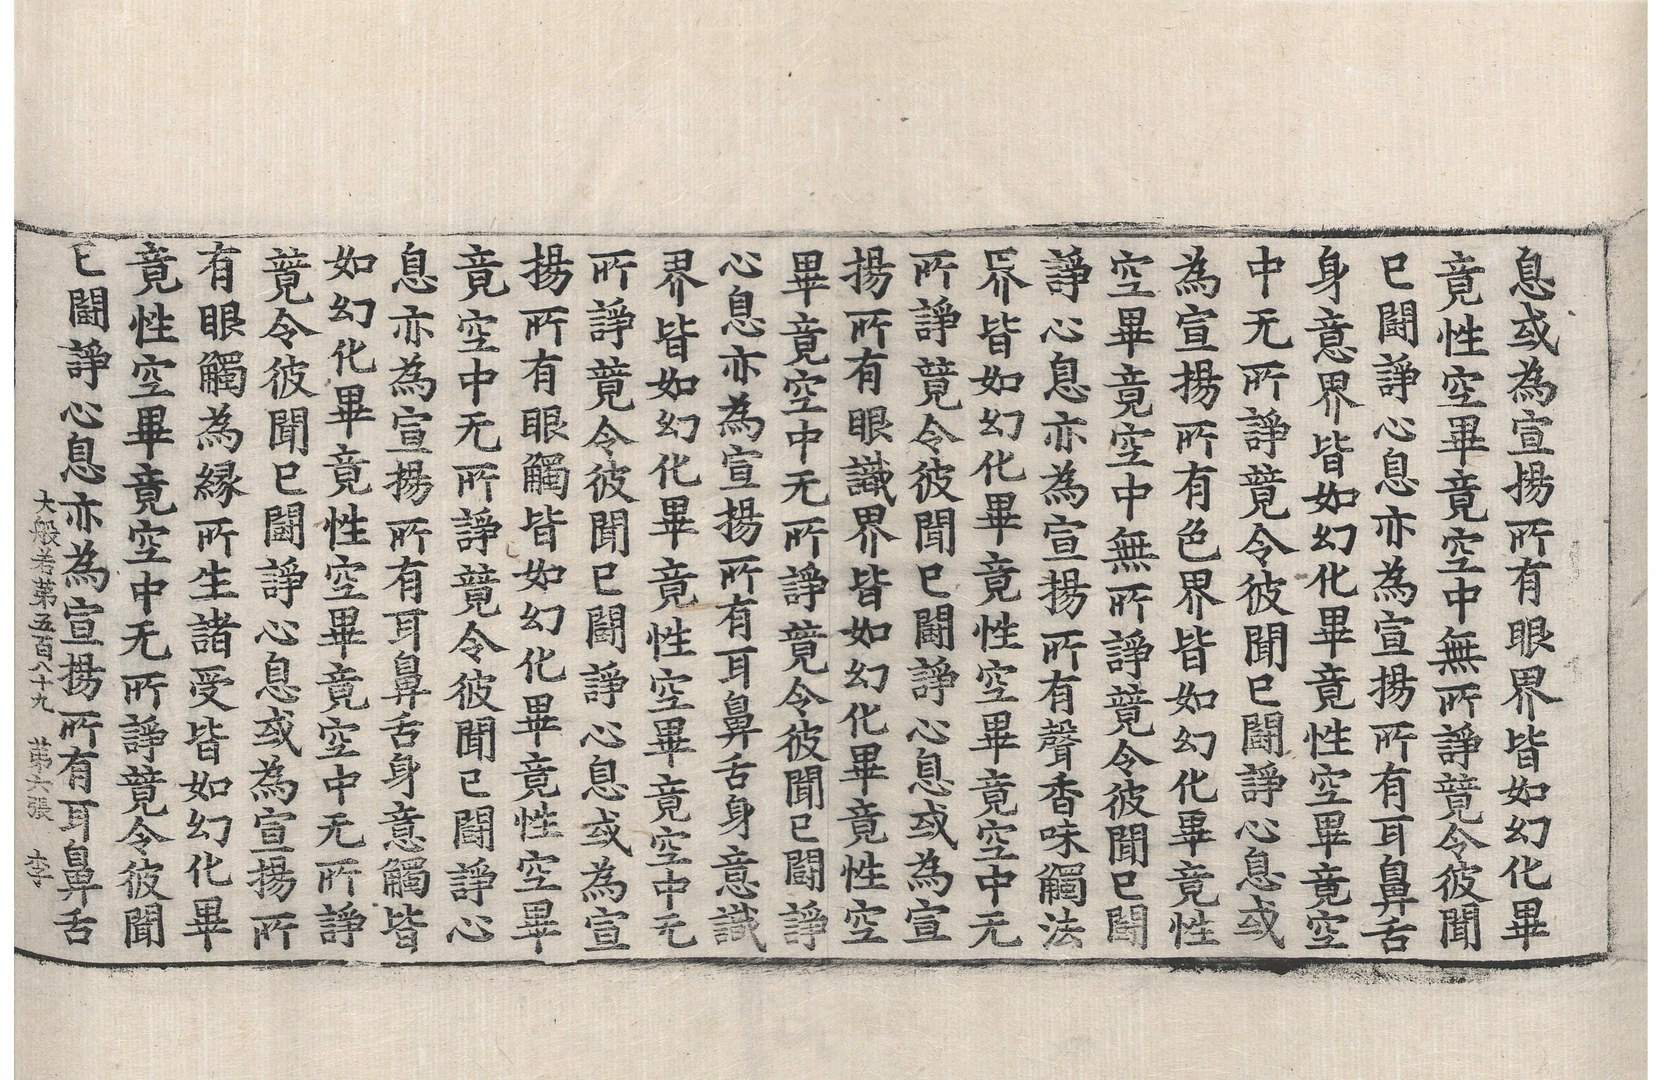 息或為宣揚所有眼界皆如幻化畢
竟性空畢竟空中無所諍競令彼聞
已鬪諍心息亦為宣揚所有耳鼻舌
身意界皆如幻化畢竟性空畢竟空
中无所諍競令彼聞已鬪諍心息或
為宣揚所有色界皆如幻化畢竟性
空畢竟空中無所諍競令彼聞已鬪
諍心息亦為宣揚所有聲香味觸法
界皆如幻化畢竟性空畢竟空中无
所諍競令彼聞已鬪諍心息或為宣
揚所有眼識界皆如幻化畢竟性空
畢竟空中无所諍競令彼聞已鬪諍
心息亦為宣揚所有耳鼻舌身意識
界皆如幻化畢竟性空畢竟空中无
所諍競令彼聞已鬪諍心息或為宣
揚所有眼觸皆如幻化畢竟性空畢
竟空中无所諍競令彼聞已鬪諍心
息亦為宣揚所有耳鼻舌身意觸皆
如幻化畢竟性空畢竟空中无所諍
競令彼聞已鬪諍心息或為宣揚所
有眼觸為緣所生諸受皆如幻化畢
竟性空畢竟空中无所諍競令彼聞
已鬪諍心息亦為宣揚所有耳鼻舌
大般若第五百八十九 第六張 李